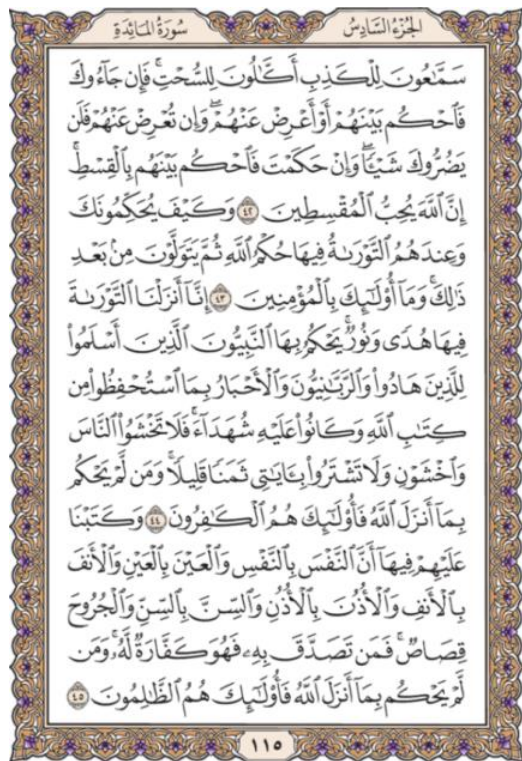 الجُزْءُ السَّادِسُ
سُورَةُ المَائِدَةِ
سَمَّٰعُونَ لِلْكَذِبِ أَكَّٰلُونَ لِلسُّحْتِۚ فَإِن جَآءُوكَ
فَٱحْكُم بَيْنَهُمْ أَوْ أَعْرِضْ عَنْهُمْۖ وَإِن تُعْرِضْ عَنْهُمْ فَلَن
يَضُرُّوكَ شَيْـًٔاۖ وَإِنْ حَكَمْتَ فَٱحْكُم بَيْنَهُم بِٱلْقِسْطِۚ
إِنَّ ٱللَّهَ يُحِبُّ ٱلْمُقْسِطِينَ ٤٢ وَكَيْفَ يُحَكِّمُونَكَ
وَعِندَهُمُ ٱلتَّوْرَىٰةُ فِيهَا حُكْمُ ٱللَّهِ ثُمَّ يَتَوَلَّوْنَ مِنۢ بَعْدِ
ذَٰلِكَۚ وَمَآ أُو۟لَٰٓئِكَ بِٱلْمُؤْمِنِينَ ٤٣ إِنَّآ أَنزَلْنَا ٱلتَّوْرَىٰةَ
فِيهَا هُدًى وَنُورٌۚ يَحْكُمُ بِهَا ٱلنَّبِيُّونَ ٱلَّذِينَ أَسْلَمُوا۟
لِلَّذِينَ هَادُوا۟ وَٱلرَّبَّٰنِيُّونَ وَٱلْأَحْبَارُ بِمَا ٱسْتُحْفِظُوا۟ مِن
كِتَٰبِ ٱللَّهِ وَكَانُوا۟ عَلَيْهِ شُهَدَآءَۚ فَلَا تَخْشَوُا۟ ٱلنَّاسَ
وَٱخْشَوْنِ وَلَا تَشْتَرُوا۟ بِـَٔايَٰتِى ثَمَنًا قَلِيلًاۚ وَمَن لَّمْ يَحْكُم
بِمَآ أَنزَلَ ٱللَّهُ فَأُو۟لَٰٓئِكَ هُمُ ٱلْكَٰفِرُونَ ٤٤ وَكَتَبْنَا
عَلَيْهِمْ فِيهَآ أَنَّ ٱلنَّفْسَ بِٱلنَّفْسِ وَٱلْعَيْنَ بِٱلْعَيْنِ وَٱلْأَنفَ
بِٱلْأَنفِ وَٱلْأُذُنَ بِٱلْأُذُنِ وَٱلسِّنَّ بِٱلسِّنِّ وَٱلْجُرُوحَ
قِصَاصٌۚ فَمَن تَصَدَّقَ بِهِۦ فَهُوَ كَفَّارَةٌ لَّهُۥۚ وَمَن
لَّمْ يَحْكُم بِمَآ أَنزَلَ ٱللَّهُ فَأُو۟لَٰٓئِكَ هُمُ ٱلظَّٰلِمُونَ ٤٥
١١٥